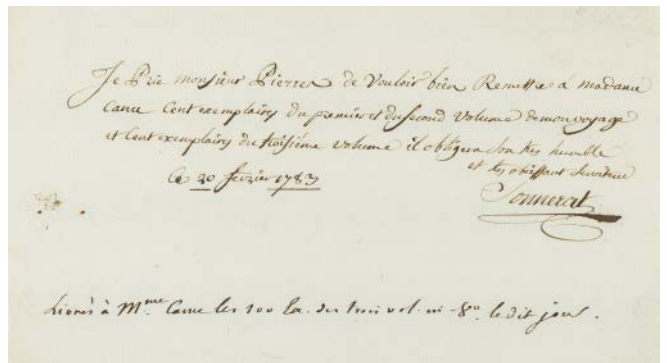 Je Prie monsieur Pierres de Vouloir bien Remettre à madame
Canu Cent exemplaires du premier et du second Volume de mon voyage
et Cent exemplaires du troisiéme volume il obligera Son tres humble
et tres obéissant Serviteur
Ce 20 fevrier 1783
Sonnerat
Livrés à Mme. Canu les 100 Ex. des trois vol. in-8o. le dit jour.